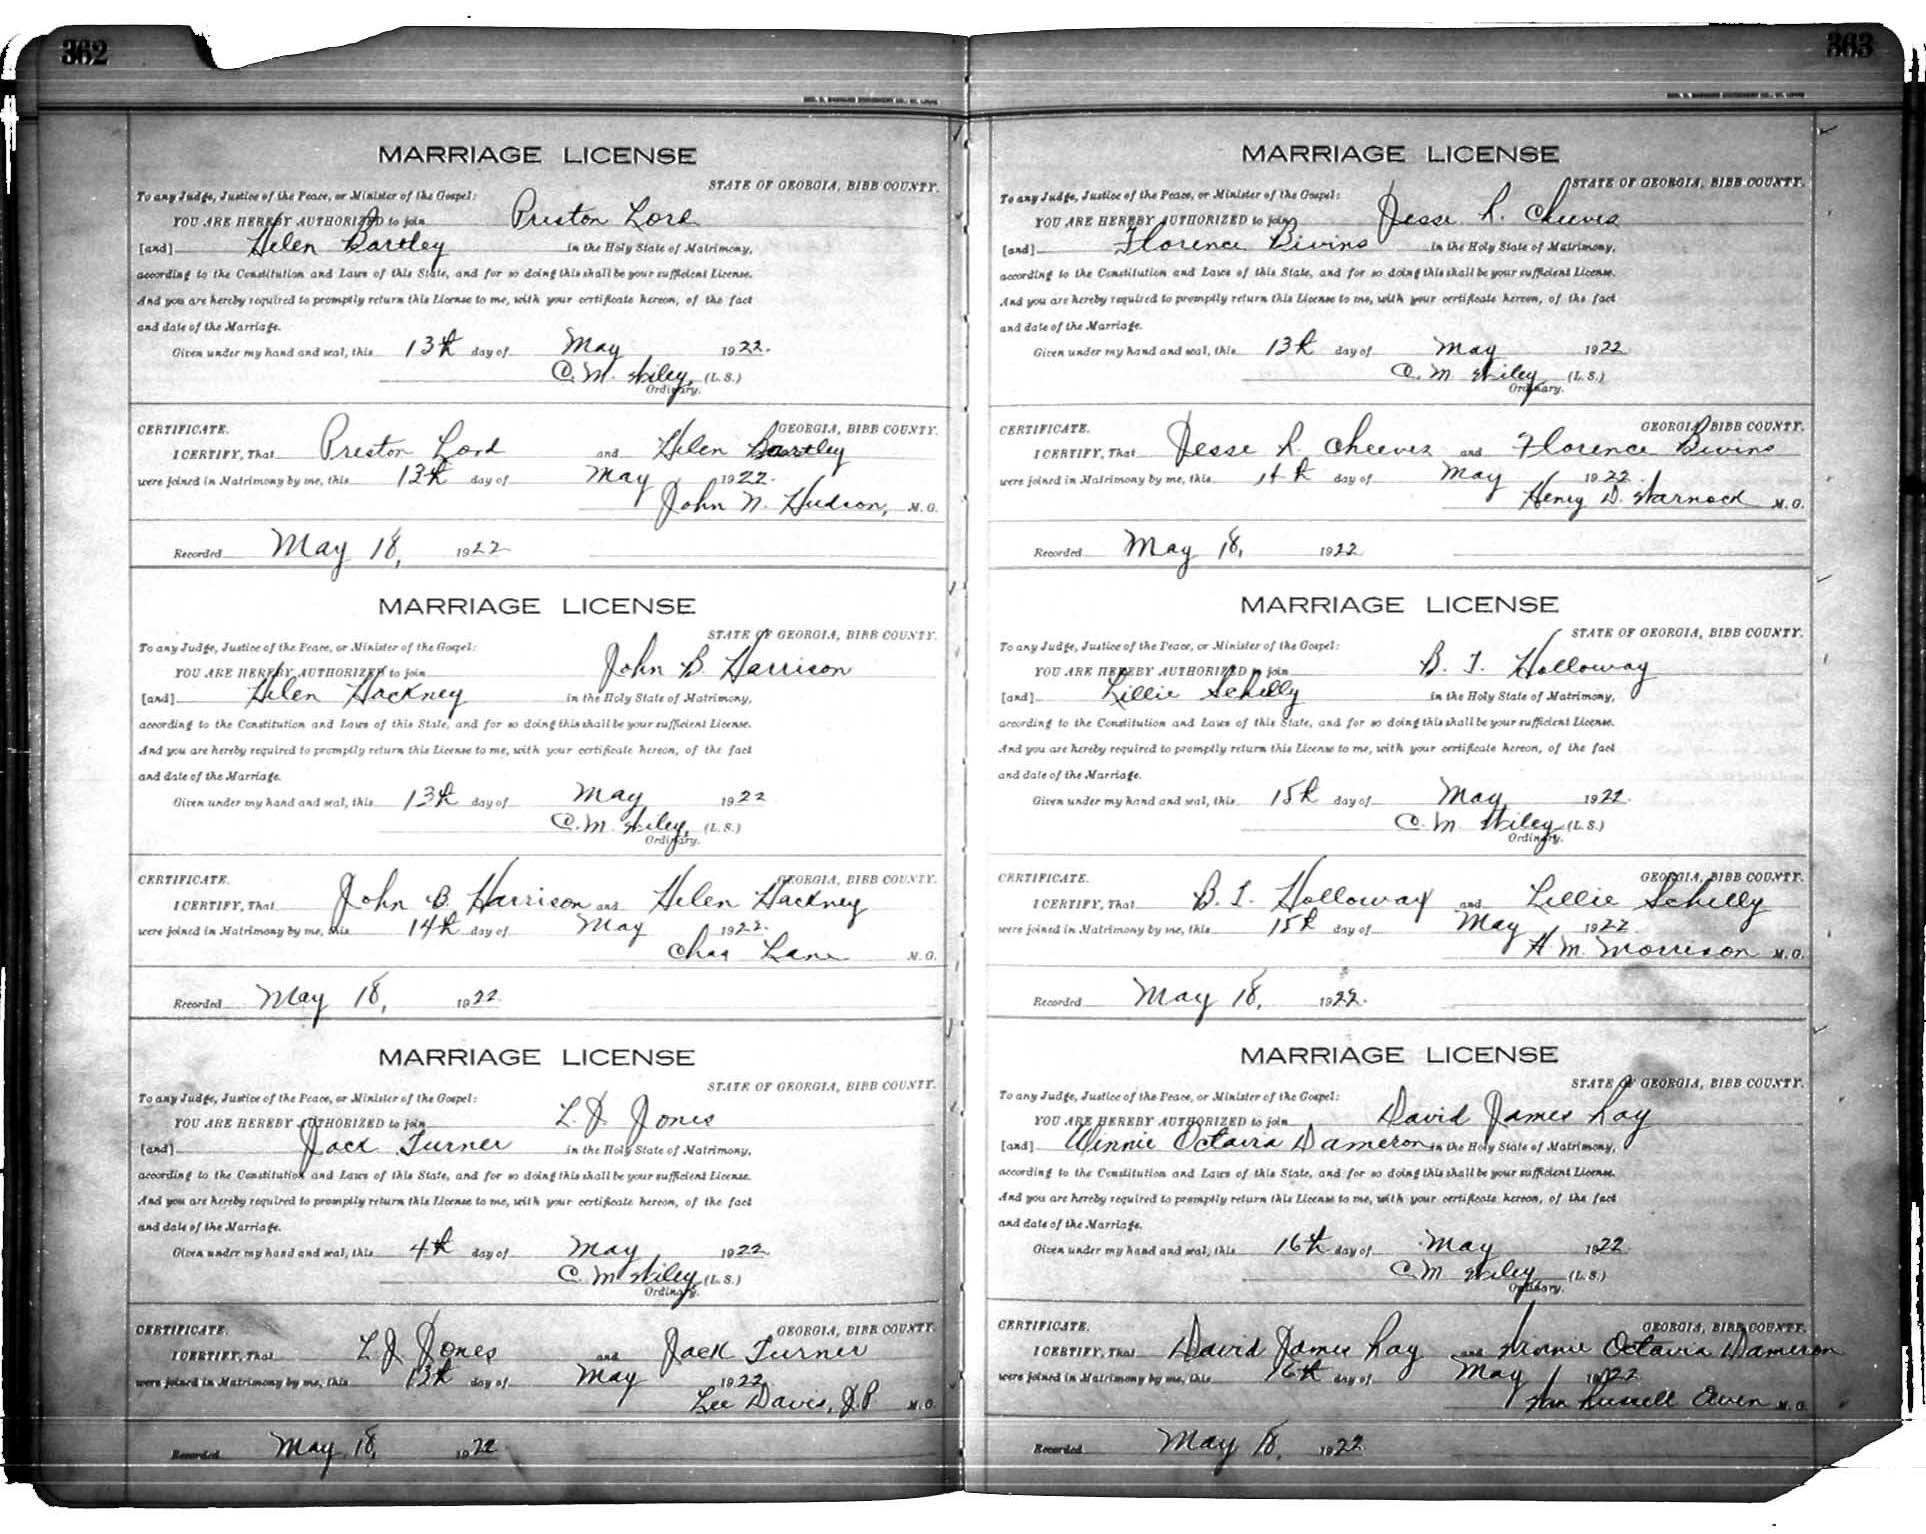 362
MARRIAGE LICENSE
STATE OF GEORGIA, BIBB COUNTY.
To any Judge, Justice of the Peace, or Minister of the Gospel:
YOU ARE HEREBY AUTHORIZED to join Preston Lord
[and] Helen Bartley in the Holy State of Matrimony,
according to the Constitution and Laws of this State, and for so doing this shall be your sufficient License.
And you are hereby required to promptly return this License to me, with your certificate hereon, of the fact
and date of the Marriage.
Given under my hand and seal, this 13th day of May 1922.
C. M. Wiley, (L.S.)
Ordinary.
CERTIFICATE. GEORGIA, BIBB COUNTY.
I CERTIFY, That Preston Lord and Helen Bartley
were joined in Matrimony by me, this 13th day of May 1922.
John N. Hudson, M.G.
Recorded May 18, 1922
MARRIAGE LICENSE
STATE OF GEORGIA, BIBB COUNTY.
To any Judge, Justice of the Peace, or Minister of the Gospel:
YOU ARE HEREBY AUTHORIZED to join John B. Harrison
[and] Helen Hackney in the Holy State of Matrimony,
according to the Constitution and Laws of this State, and for so doing this shall be your sufficient License.
And you are hereby required to promptly return this License to me, with your certificate hereon, of the fact
and date of the Marriage.
Given under my hand and seal, this 13th day of May 1922
C. M. Wiley, (L.S.)
Ordinary.
CERTIFICATE. GEORGIA, BIBB COUNTY.
I CERTIFY, That John B. Harrison and Helen Hackney
were joined in Matrimony by me, this 14th day of May 1922.
Chas Lane M.G.
Recorded May 18, 1922.
MARRIAGE LICENSE
STATE OF GEORGIA, BIBB COUNTY.
To any Judge, Justice of the Peace, or Minister of the Gospel:
YOU ARE HEREBY AUTHORIZED to join L. J. Jones
[and] Jack Turner in the Holy State of Matrimony,
according to the Constitution and Laws of this State, and for so doing this shall be your sufficient License.
And you are hereby required to promptly return this License to me, with your certificate hereon, of the fact
and date of the Marriage.
Given under my hand and seal, this 4th day of May 1922.
C. M. Wiley (L.S.)
Ordinary.
CERTIFICATE. GEORGIA, BIBB COUNTY.
I CERTIFY, That L. J. Jones and Jack Turner
were joined in Matrimony by me, this 13th day of May 1922
Lee Davis, J.P. M.G.
Recorded May 18, 1922.
363
MARRIAGE LICENSE
STATE OF GEORGIA, BIBB COUNTY.
To any Judge, Justice of the Peace, or Minister of the Gospel:
YOU ARE HEREBY AUTHORIZED to join Jesse R. Cheeves
[and] Florence Bivins in the Holy State of Matrimony,
according to the Constitution and Laws of this State, and for so doing this shall be your sufficient License.
And you are hereby required to promptly return this License to me, with your certificate hereon, of the fact
and date of the Marriage.
Given under my hand and seal, this 13th day of May 1922
C. M. Wiley (L.S.)
Ordinary.
CERTIFICATE. GEORGIA, BIBB COUNTY.
I CERTIFY, That Jesse R. Cheeves and Florence Bivins
were joined in Matrimony by me, this 14th day of May 1922.
Henry D. Warnock M.G.
Recorded May 18, 1922
MARRIAGE LICENSE
STATE OF GEORGIA, BIBB COUNTY.
To any Judge, Justice of the Peace, or Minister of the Gospel:
YOU ARE HEREBY AUTHORIZED to join B. T. Holloway
[and] Lillie Schelly in the Holy State of Matrimony,
according to the Constitution and Laws of this State, and for so doing this shall be your sufficient License.
And you are hereby required to promptly return this License to me, with your certificate hereon, of the fact
and date of the Marriage.
Given under my hand and seal, this 15th day of May 1922.
C. M. Wiley (L.S.)
Ordinary.
CERTIFICATE. GEORGIA, BIBB COUNTY.
I CERTIFY, That B. T. Holloway and Lillie Schelly
were joined in Matrimony by me, this 15th day of May 1922
H. M. Morrison M.G.
Recorded May 18, 1922.
MARRIAGE LICENSE
STATE OF GEORGIA, BIBB COUNTY.
To any Judge, Justice of the Peace, or Minister of the Gospel:
YOU ARE HEREBY AUTHORIZED to join David James Ray
[and] Winnie Octavia Dameron in the Holy State of Matrimony,
according to the Constitution and Laws of this State, and for so doing this shall be your sufficient License.
And you are hereby required to promptly return this License to me, with your certificate hereon, of the fact
and date of the Marriage.
Given under my hand and seal, this 16th day of May 1922
C. M. Wiley (L.S.)
Ordinary.
CERTIFICATE. GEORGIA, BIBB COUNTY.
I CERTIFY, That David James Ray and Winnie Octavia Dameron
were joined in Matrimony by me, this 16th day of May 1922
Wm Russell Owen M.G.
Recorded May 18, 1922